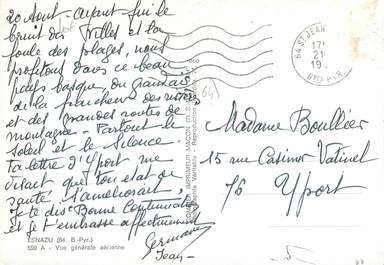 20 Août - Ayant fui le
bruit des villes et la
foule des plages, nous
profitons dans ce beau
pays basque du grand air
de la fraicheur des rivières
et des grandes routes de
montagne - Partout le
soleil et le silence.
Ta lettre d'Yport me
disant que ton état de
santé s'améliorait,
Je te dis "Bonne Continuation"
et je t'embrasse affectueusement
Germaine
Jean -
ESNAZU (64. B.-Pyr.)
559 A - Vue générale aérienne
IMPRIMEUR
Véritable - Reproduction
64 ST JEAN
17H
21
19
Bses PYR.
64
Madame Boullier
15 rue Casimir Vatinel
76 Yport